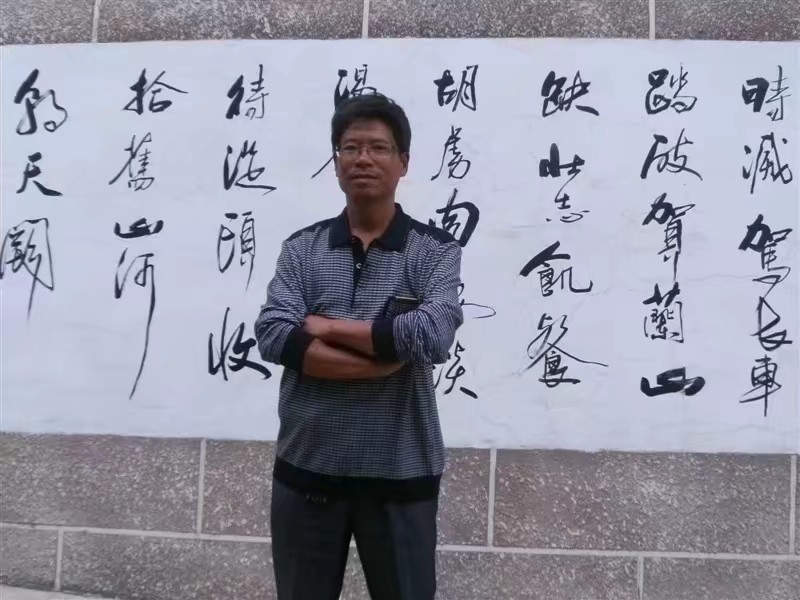 時滅駕長車
踏破賀蘭山
缺壯志飢餐
胡虜肉談
渴
待從頭收
拾舊山河
朝天闕